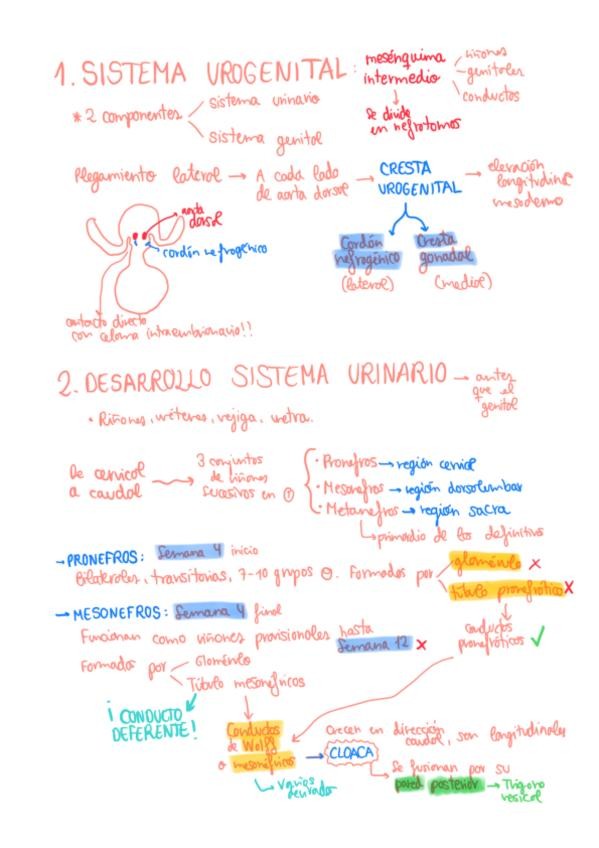 1. SISTEMA UROGENITAL:
mesénquima
intermedio
riñones
genitales
conductos
se divide
en nefrotomos
* 2 componentes
sistema urinario
sistema genital
Plegamiento lateral → A cada lado
de aorta dorsal → CRESTA
UROGENITAL → elevación
longitudinal
mesodermo
aorta
dorsal
cordón nefrogénico
Cordón
nefrogénico
(lateral)
Cresta
gonadal
(medial)
contacto directo
con celoma intraembrionario!!
2. DESARROLLO SISTEMA URINARIO → antes
que el
genital
• Riñones, uréteres, vejiga, uretra.
De cervical
a caudal
3 conjuntos
de riñones
sucesivos en
• Pronefros → región cervical
• Mesonefros → región dorsolumbar
• Metanefros → región sacra
primordio de los definitivos
→ PRONEFROS: Semana 4 inicio
Bilaterales, transitorias, 7-10 grupos. Formados por
glomérulo X
túbulo pronefrótico X
conductos
pronefróticos ✓
→ MESONEFROS: Semana 4 final
Funcionan como riñones provisionales hasta
Semana 12 X
Formados por
Glomérulo
Túbulo mesonéfricos
¡CONDUCTO
DEFERENTE!
Conductos
de Wolff
o mesonéfricos → CLOACA
Varios
derivados
Crecen en dirección
caudal, son longitudinales
Se fusionan por su
pared posterior → Trígono
vesical